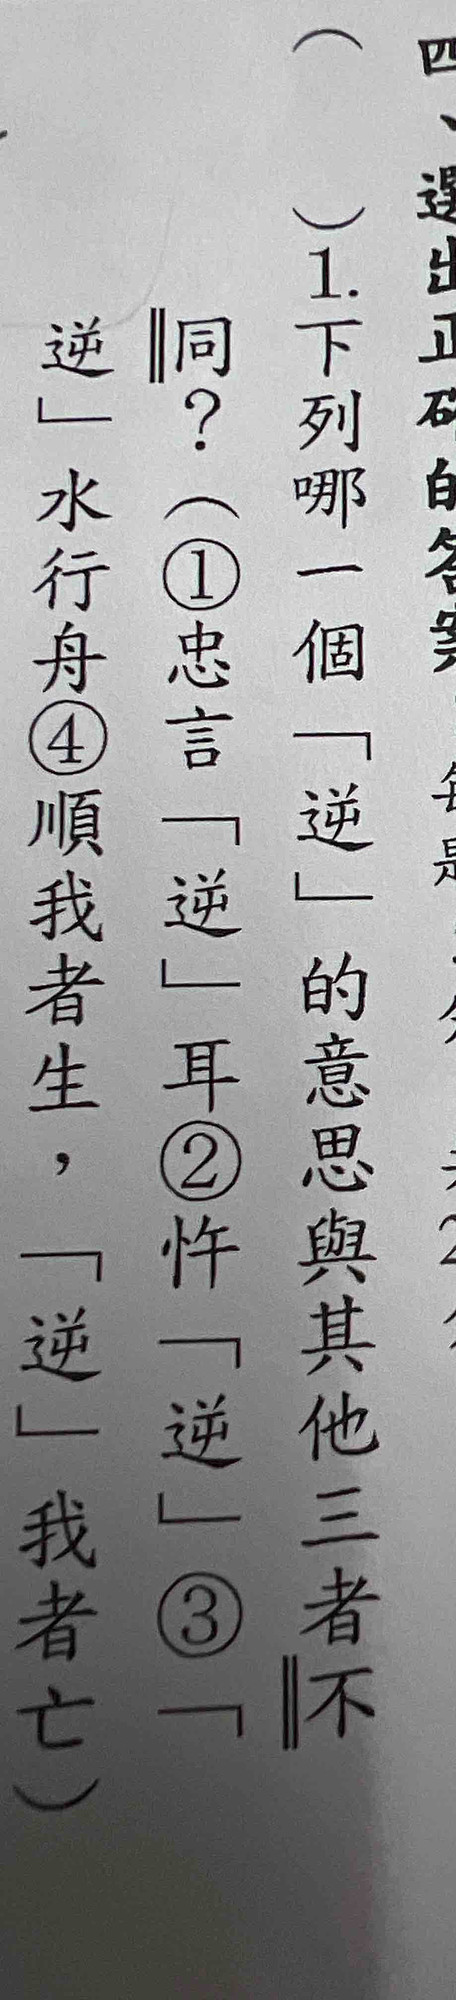 四、選出正確的答案
（　　）1.下列哪一個「逆」的意思與其他三者不
同？（①忠言「逆」耳②忤「逆」③「
逆」水行舟④順我者生，「逆」我者亡）